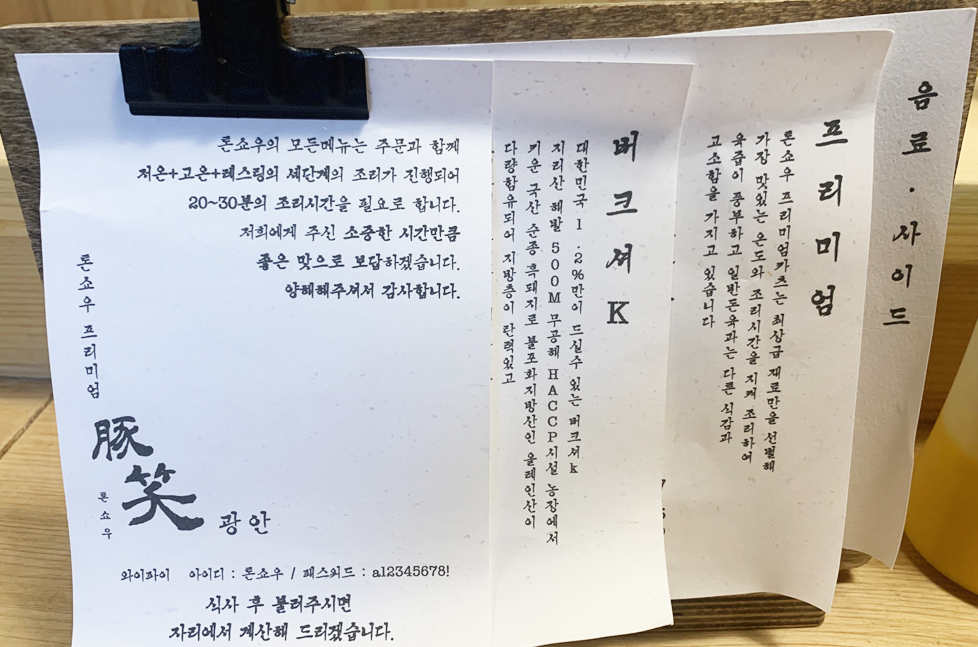 톤쇼우의 모든메뉴는 주문과 함께
저온+고온+레스팅의 세단계의 조리가 진행되어
20~30분의 조리시간을 필요로 합니다.
저희에게 주신 소중한 시간만큼
좋은 맛으로 보답하겠습니다.
양해해주셔서 감사합니다.
톤쇼우 프리미엄
豚笑
톤쇼우
광안
와이파이 아이디 : 톤쇼우 / 패스워드 : a12345678!
식사 후 불러주시면
자리에서 계산해 드리겠습니다.
버크셔K
대한민국 1.2%만이 드실수 있는 버크셔k
지리산 해발 500M 무공해 HACCP시설 농장에서
키운 국산 순종 흑돼지로 불포화지방산인 올레인산이
다량함유되어 지방층이 탄력있고
프리미엄
톤쇼우 프리미엄카츠는 최상급 재료만을 선별해
가장 맛있는 온도와 조리시간을 지켜 조리하여
육즙이 풍부하고 일반돈육과는 다른 식감과
고소함을 가지고 있습니다
음료·사이드